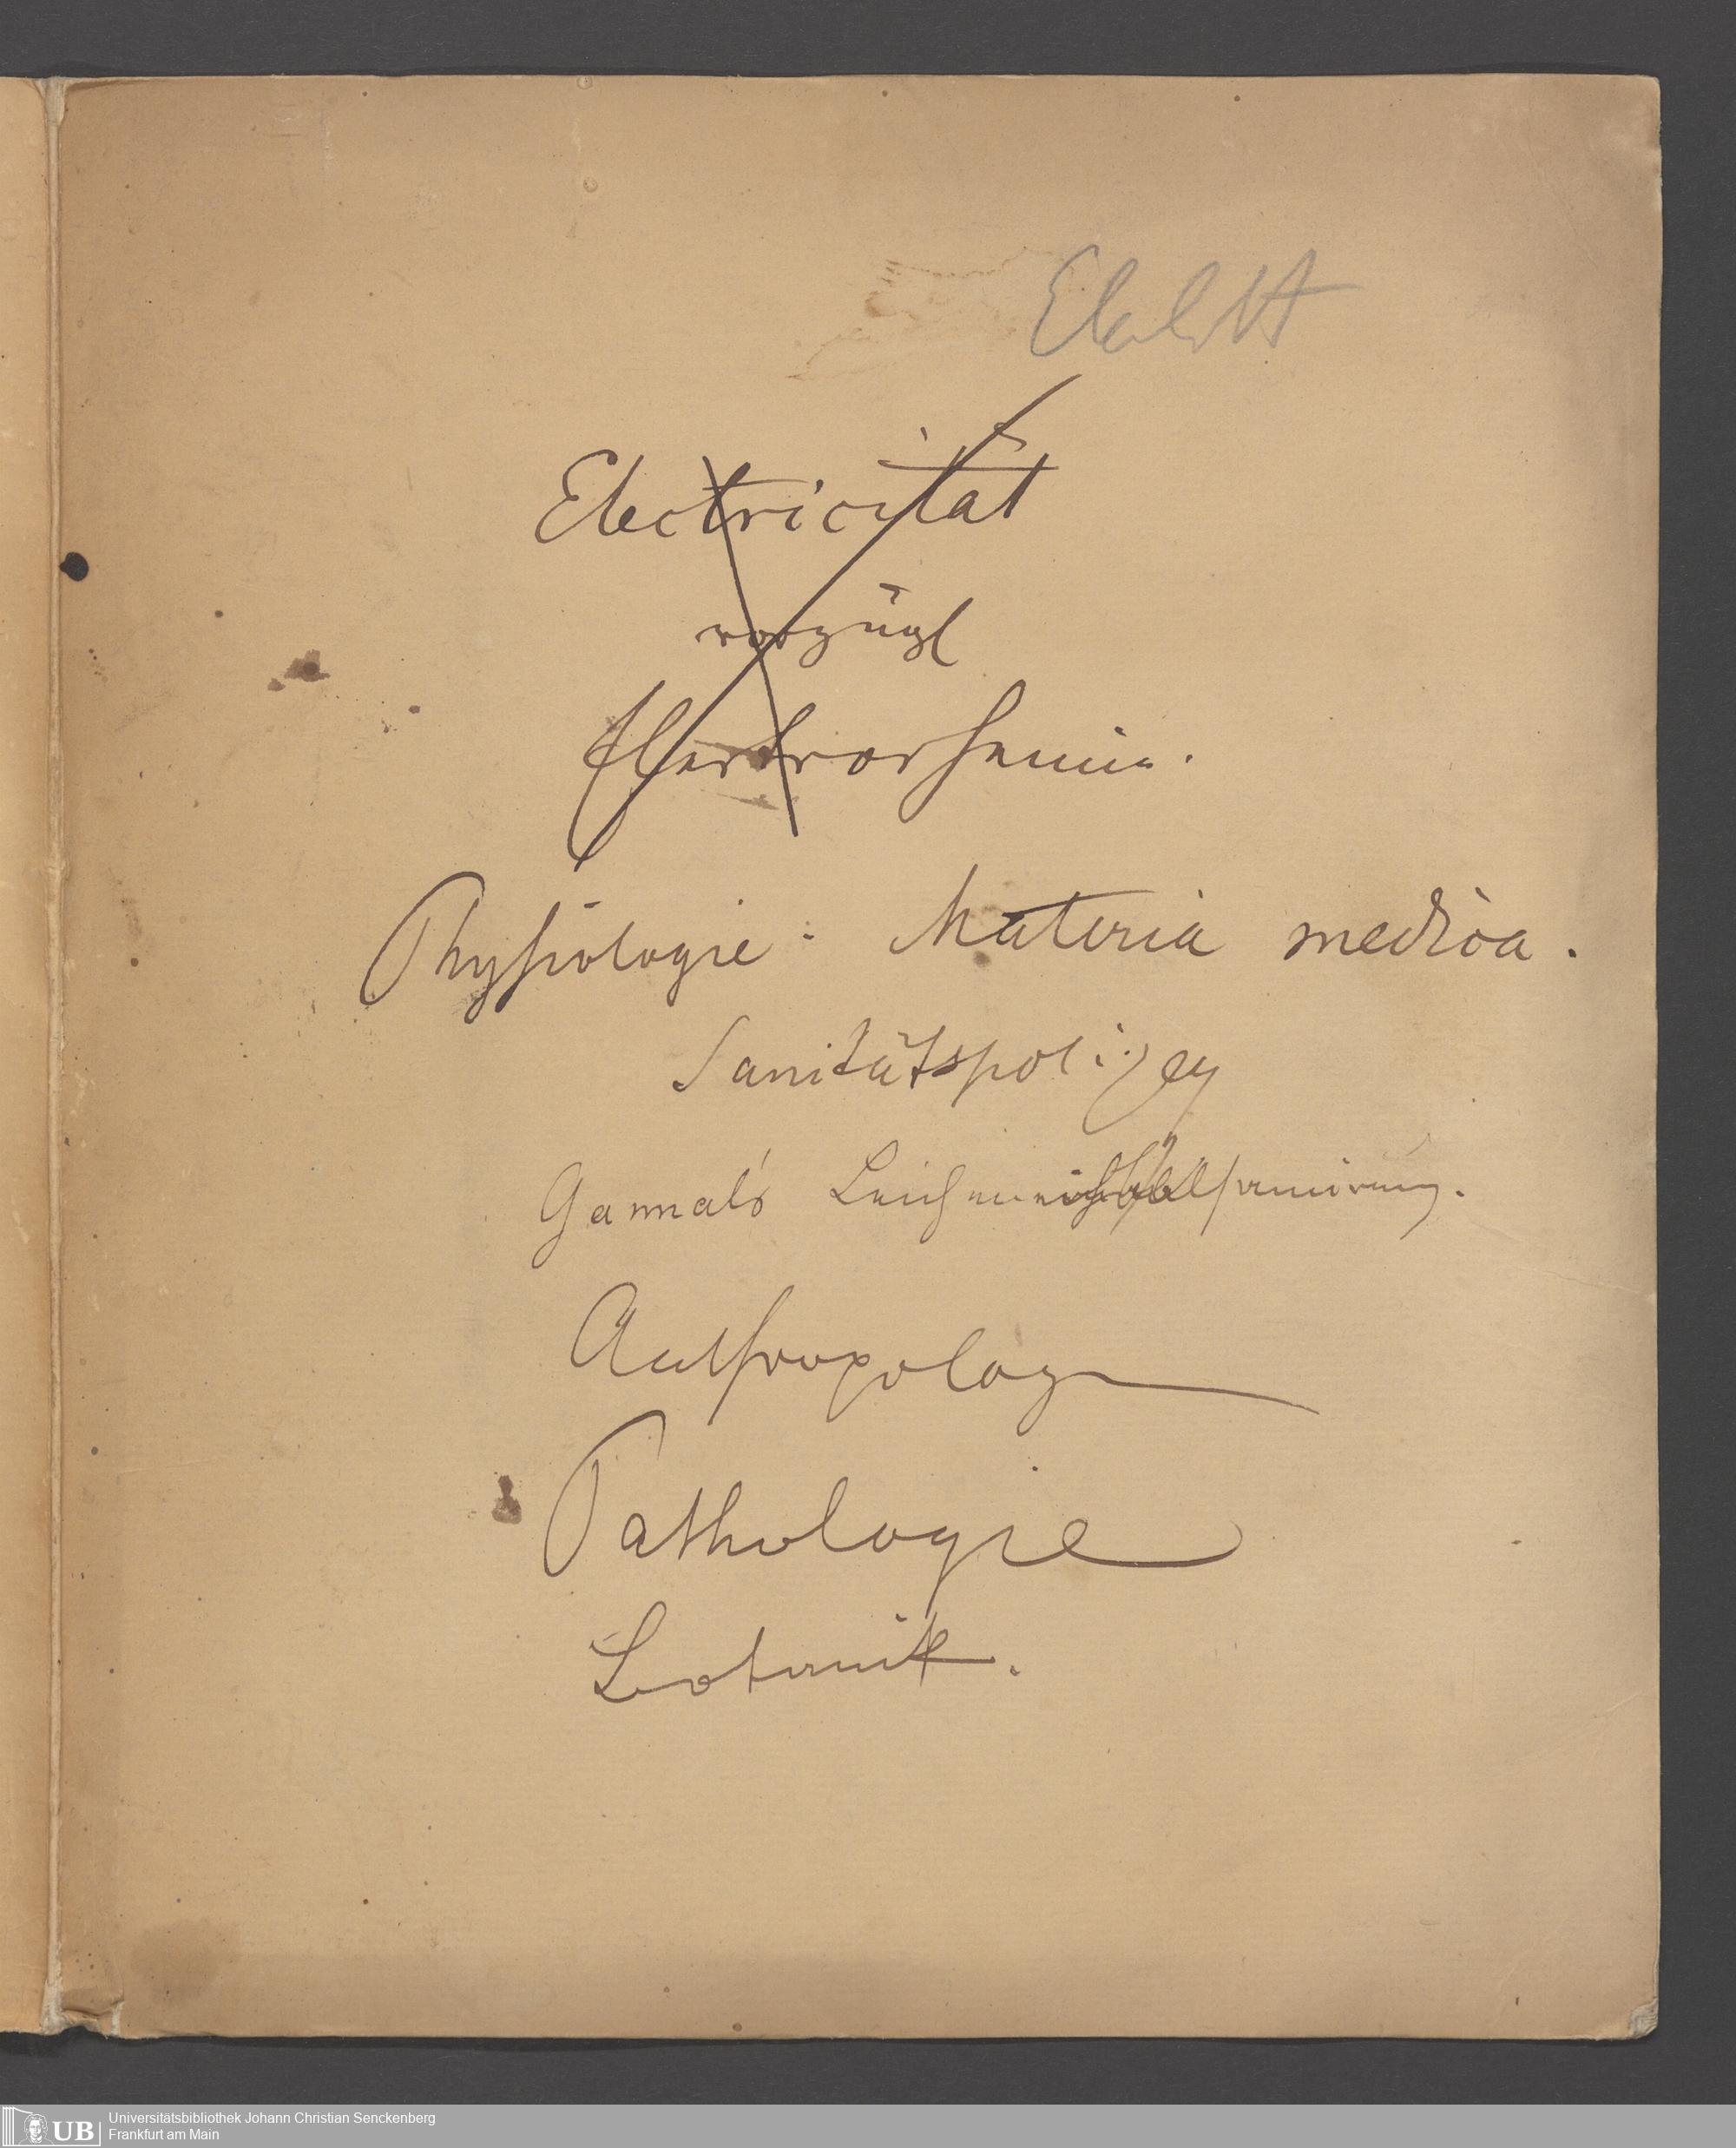 Electricität
vorzügl
Electrochemie.
Physiologie. Materia medica.
Sanitätspolizey
Gannal's Leichen balsamirung.
Anthropologie
Pathologie
Botanik.
UB Universitätsbibliothek Johann Christian Senckenberg
Frankfurt am Main